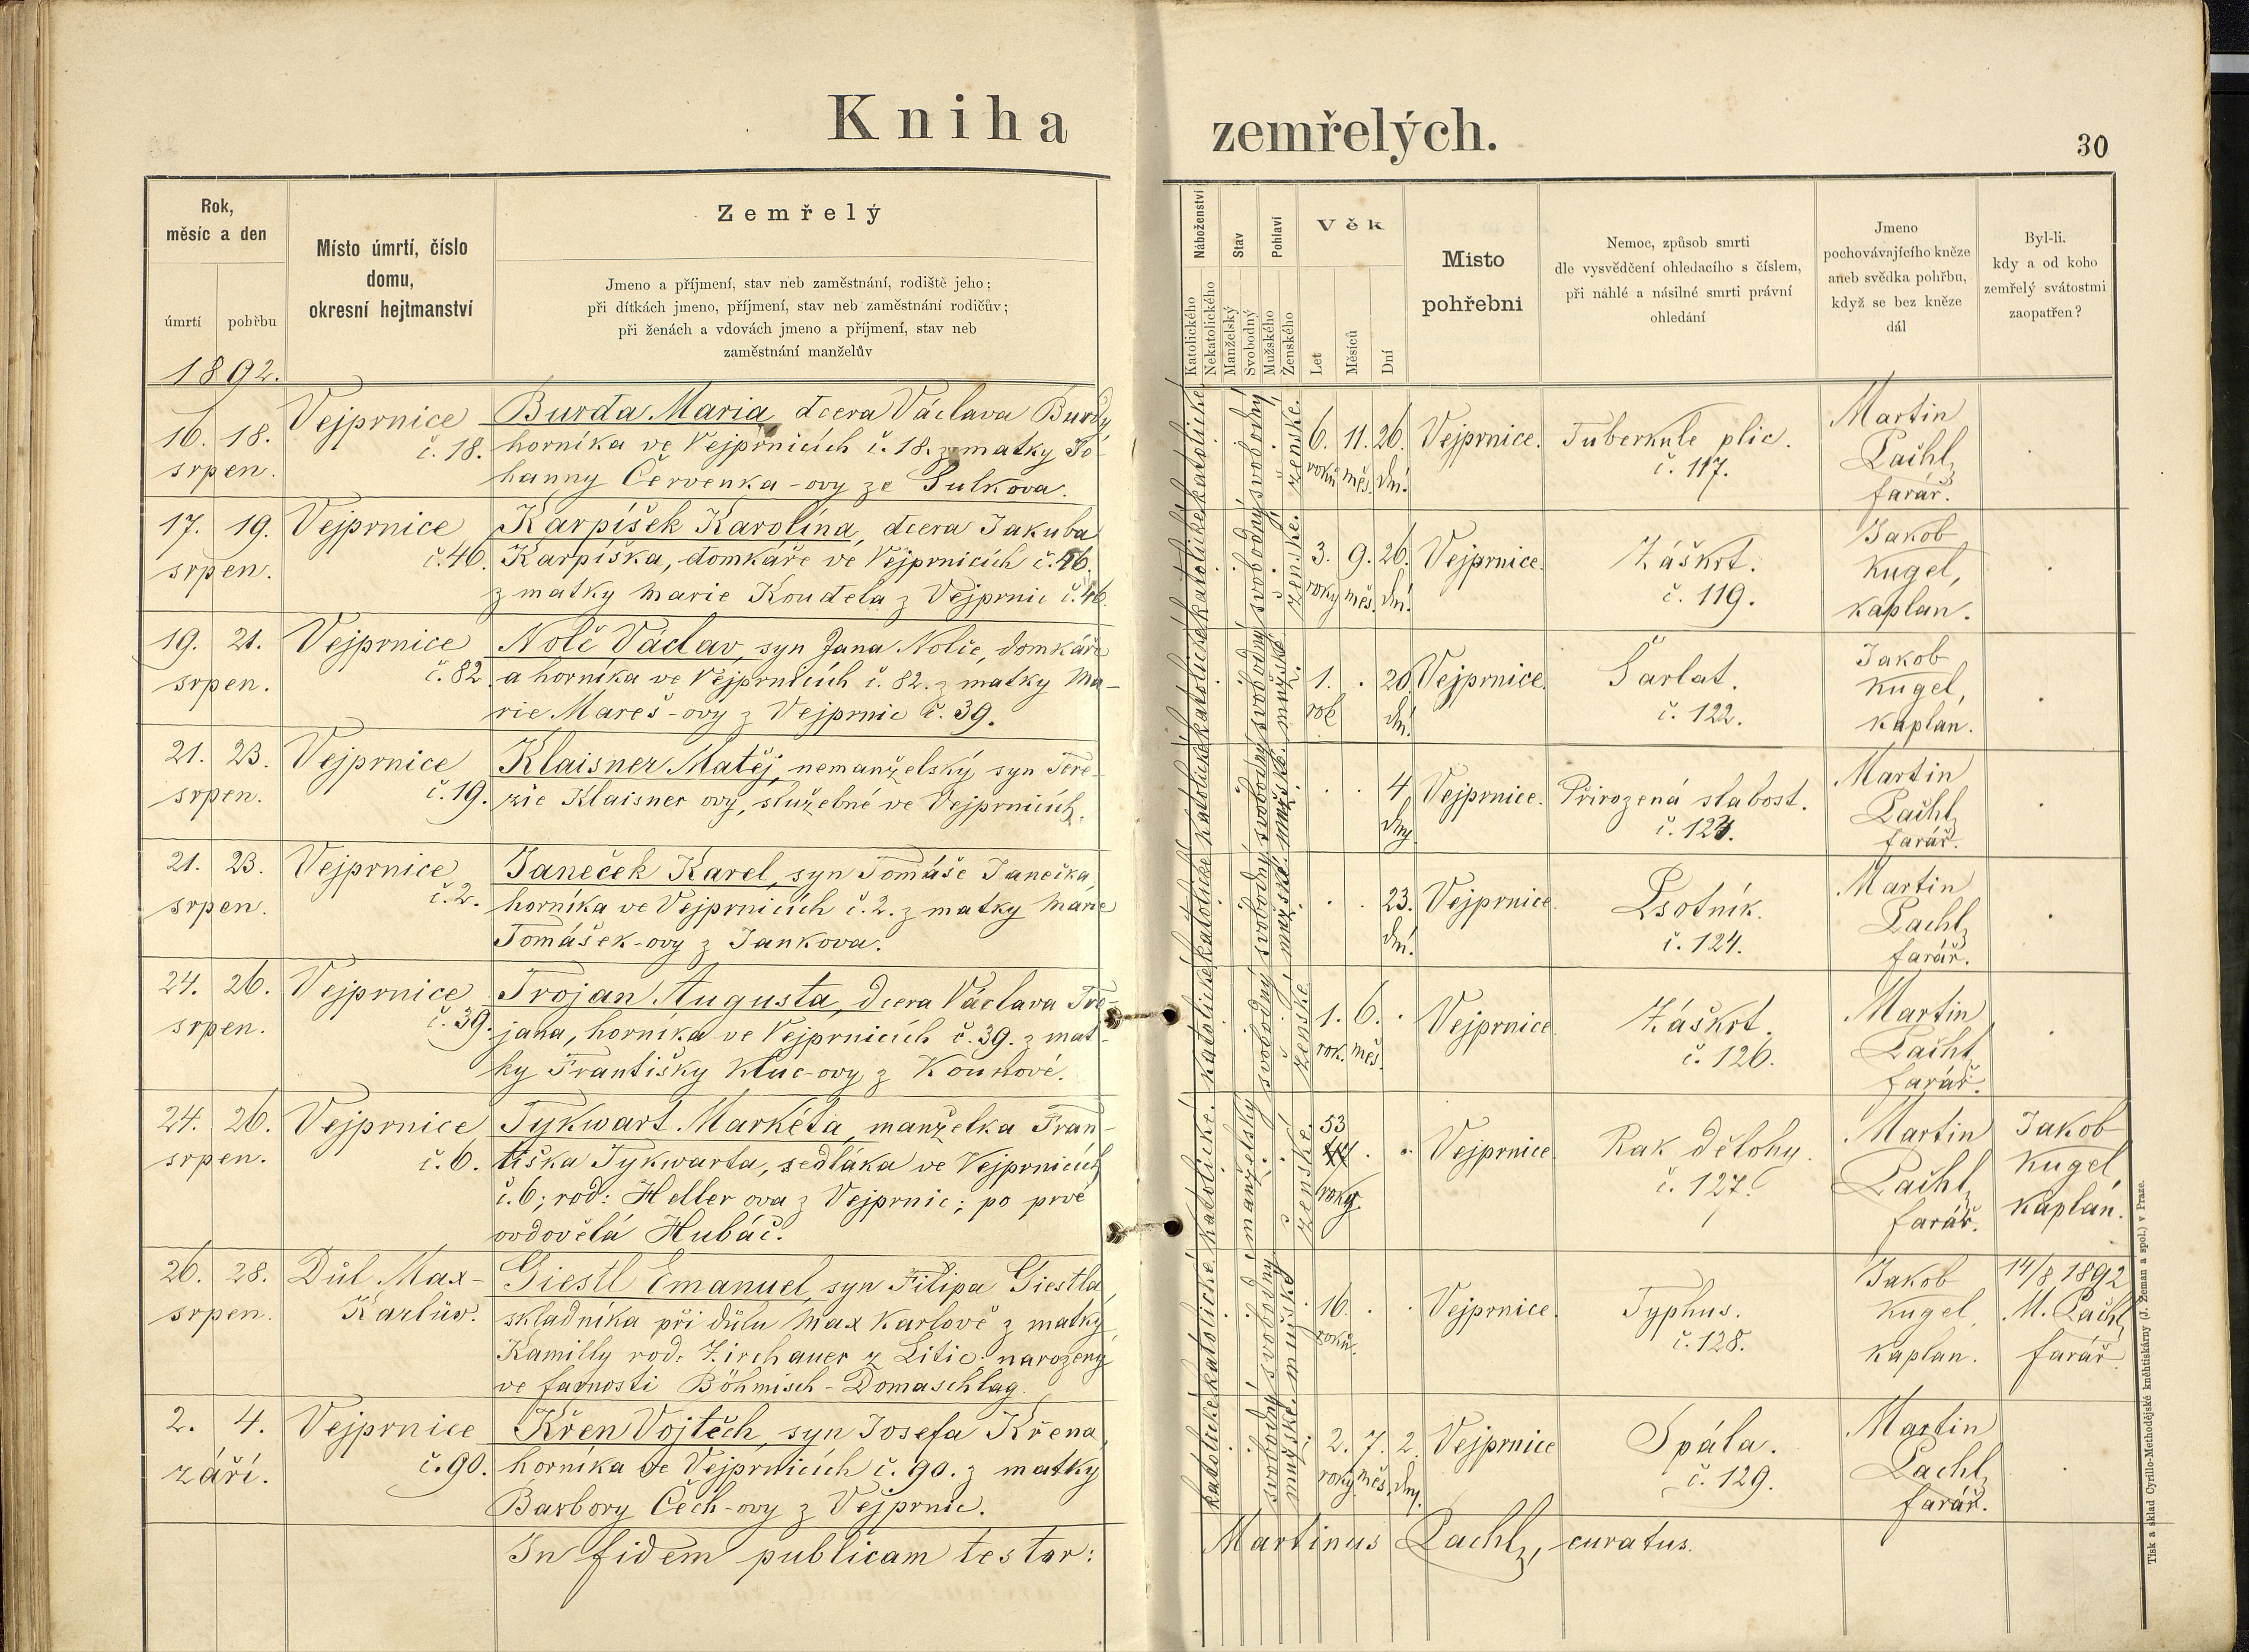 Kniha zemřelých.
30
Rok, měsíc a den
úmrtí
pohřbu
Místo úmrtí, číslo domu, okresní hejtmanství
Zemřelý
Jmeno a příjmení, stav neb zaměstnání, rodiště jeho;
při dítkách jmeno, příjmení, stav neb zaměstnání rodičův;
při ženách a vdovách jmeno a příjmení, stav neb
zaměstnání manželův
Náboženství
Katolického
Nekatolického
Stav
Manželský
Svobodný
Pohlaví
Mužského
Ženského
Věk
Let
Měsíců
Dní
Místo pohřební
Nemoc, způsob smrti
dle vysvědčení ohledacího s číslem,
při náhlé a násilné smrti právní
ohledání
Jmeno
pochovávajícího kněze
aneb svědka pohřbu,
když se bez kněze
dál
Byl-li,
kdy a od koho
zemřelý svátostmi
zaopatřen?
1892.
16. 18. srpen.
Vejprnice č. 18.
Burda Maria, dcera Václava Burdy
horníka ve Vejprnicích č. 18. z matky Jo-
hanny Červenka-ovy ze Sulkova.
katolické svobodný ženské.
6. roků 11. měs. 26. dní
Vejprnice.
Tuberkule plic.
č. 117.
Martin
Lachl,
farář.
17. 19. srpen.
Vejprnice č. 46.
Karpíšek Karolína, dcera Jakuba
Karpíška, domkáře ve Vejprnicích č. 46.
z matky Marie Koudela z Vejprnic č. 46.
katolické svobodný ženské.
3. roky 9. měs. 26. dní
Vejprnice.
Záškrt.
č. 119.
Jakob
Kugel,
kaplan.
19. 21. srpen.
Vejprnice č. 82.
Nolč Václav, syn Jana Nolče, domkáře
a horníka ve Vejprnicích č. 82. z matky Ma-
rie Mareš-ovy z Vejprnic č. 39.
katolické svobodný mužské.
1. rok 20. dní
Vejprnice.
Šarlat.
č. 122.
Jakob
Kugel,
kaplan.
21. 23. srpen.
Vejprnice č. 19.
Klaisner Matěj, nemanželský syn Tere-
zie Klaisner ovy, služebné ve Vejprnicích.
katolické svobodný mužské.
4 dny
Vejprnice.
Přirozená slabost.
č. 123.
Martin
Lachl,
farář.
21. 23. srpen.
Vejprnice č. 2.
Janeček Karel, syn Tomáše Janečka,
horníka ve Vejprnicích č. 2. z matky Marie
Tomášek-ovy z Jankova.
katolické svobodný mužské
23. dní
Vejprnice.
Psotník.
č. 124.
Martin
Lachl,
farář.
24. 26. srpen.
Vejprnice č. 39.
Trojan Augusta, dcera Václava Tro-
jana, horníka ve Vejprnicích č. 39. z mat-
ky Františky Kluc-ovy z Kounové.
katolické svobodný ženské
1. rok. 6. měs.
Vejprnice
Záškrt.
č. 126.
Martin
Lachl,
farář.
24. 26. srpen.
Vejprnice č. 6.
Tykwart Markéta, manželka Fran-
tiška Tykwarta, sedláka ve Vejprnicích
č. 6; rod: Heller ova z Vejprnic; po prvé
ovdovělá Hubáč.
katolické. manželský ženské.
53 roky
Vejprnice
Rak dělohy.
č. 127.
Martin
Lachl,
farář.
Jakob
Kugel
kaplán.
26. 28. srpen.
Důl Max-
Karlův.
Giestl Emanuel, syn Filipa Giestla,
skladníka při důlu Max Karlově z matky
Kamilly rod: Zirchauer z Litic: narozený
ve farnosti Böhmisch-Domaschlag.
katolické svobodný mužské
16. roků.
Vejprnice.
Typhus.
č. 128.
Jakob
Kugel,
kaplan.
14/8 1892
M. Lachl,
farář.
2. 4. září.
Vejprnice č. 90.
Křen Vojtěch, syn Josefa Křena,
horníka ve Vejprnicích č. 90. z matky
Barbory Čech-ovy z Vejprnic.
katolické svobodný mužské
2. roky 7. měs. 2. dny.
Vejprnice
Spála.
č. 129.
Martin
Lachl,
farář.
In fidem publicam testor: Martinus Lachl, curatus.
Tisk a sklad Cyrillo-Methodějské kněhtiskárny (J. Zeman a spol.) v Praze.